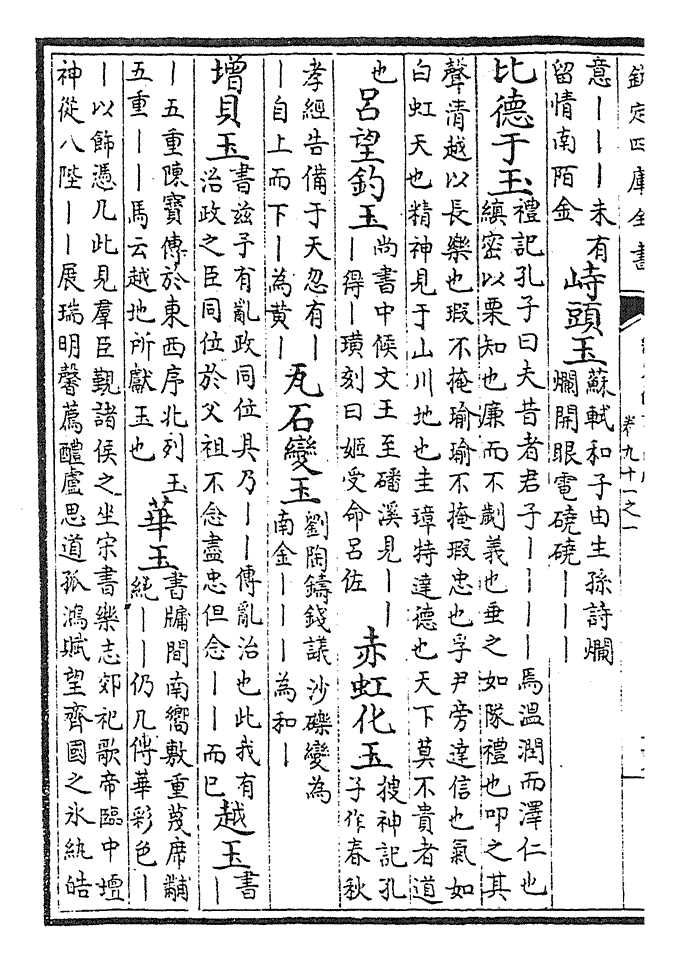 欽定四庫全書
卷九十一之一
意｜｜｜未有
留情南陌金
峙頭玉
蘇軾和子由生孫詩爛
爛開眼電磽磽｜｜｜
比德于玉
禮記孔子曰夫昔者君子｜｜｜｜焉溫潤而澤仁也
縝密以栗知也廉而不劌義也垂之如隊禮也叩之其
聲清越以長樂也瑕不掩瑜瑜不掩瑕忠也孚尹旁達信也氣如
白虹天也精神見于山川地也圭璋特達德也天下莫不貴者道
也
呂望釣玉
尚書中候文王至磻溪見｜｜
｜得｜璜刻曰姬受命呂佐
赤虹化玉
搜神記孔
子作春秋
孝經告備于天忽有｜
｜自上而下｜為黄｜
瓦石變玉
劉陶鑄錢議沙礫變為
南金｜｜｜為和｜
增貝玉
書兹予有亂政同位具乃｜｜傳亂治也此我有
治政之臣同位於父祖不念盡忠但念｜｜而已
越玉
書
｜
｜五重陳寶傳於東西序北列玉
五重｜｜馬云越地所獻玉也
華玉
書牖間南嚮敷重蔑席黼
純｜｜仍几傳華彩色｜
｜以飾憑几此見羣臣覲諸侯之坐宋書樂志郊祀歌帝臨中壇
神從八陛｜｜展瑞明馨薦醴盧思道孤鴻賦望齊國之氷紈皓